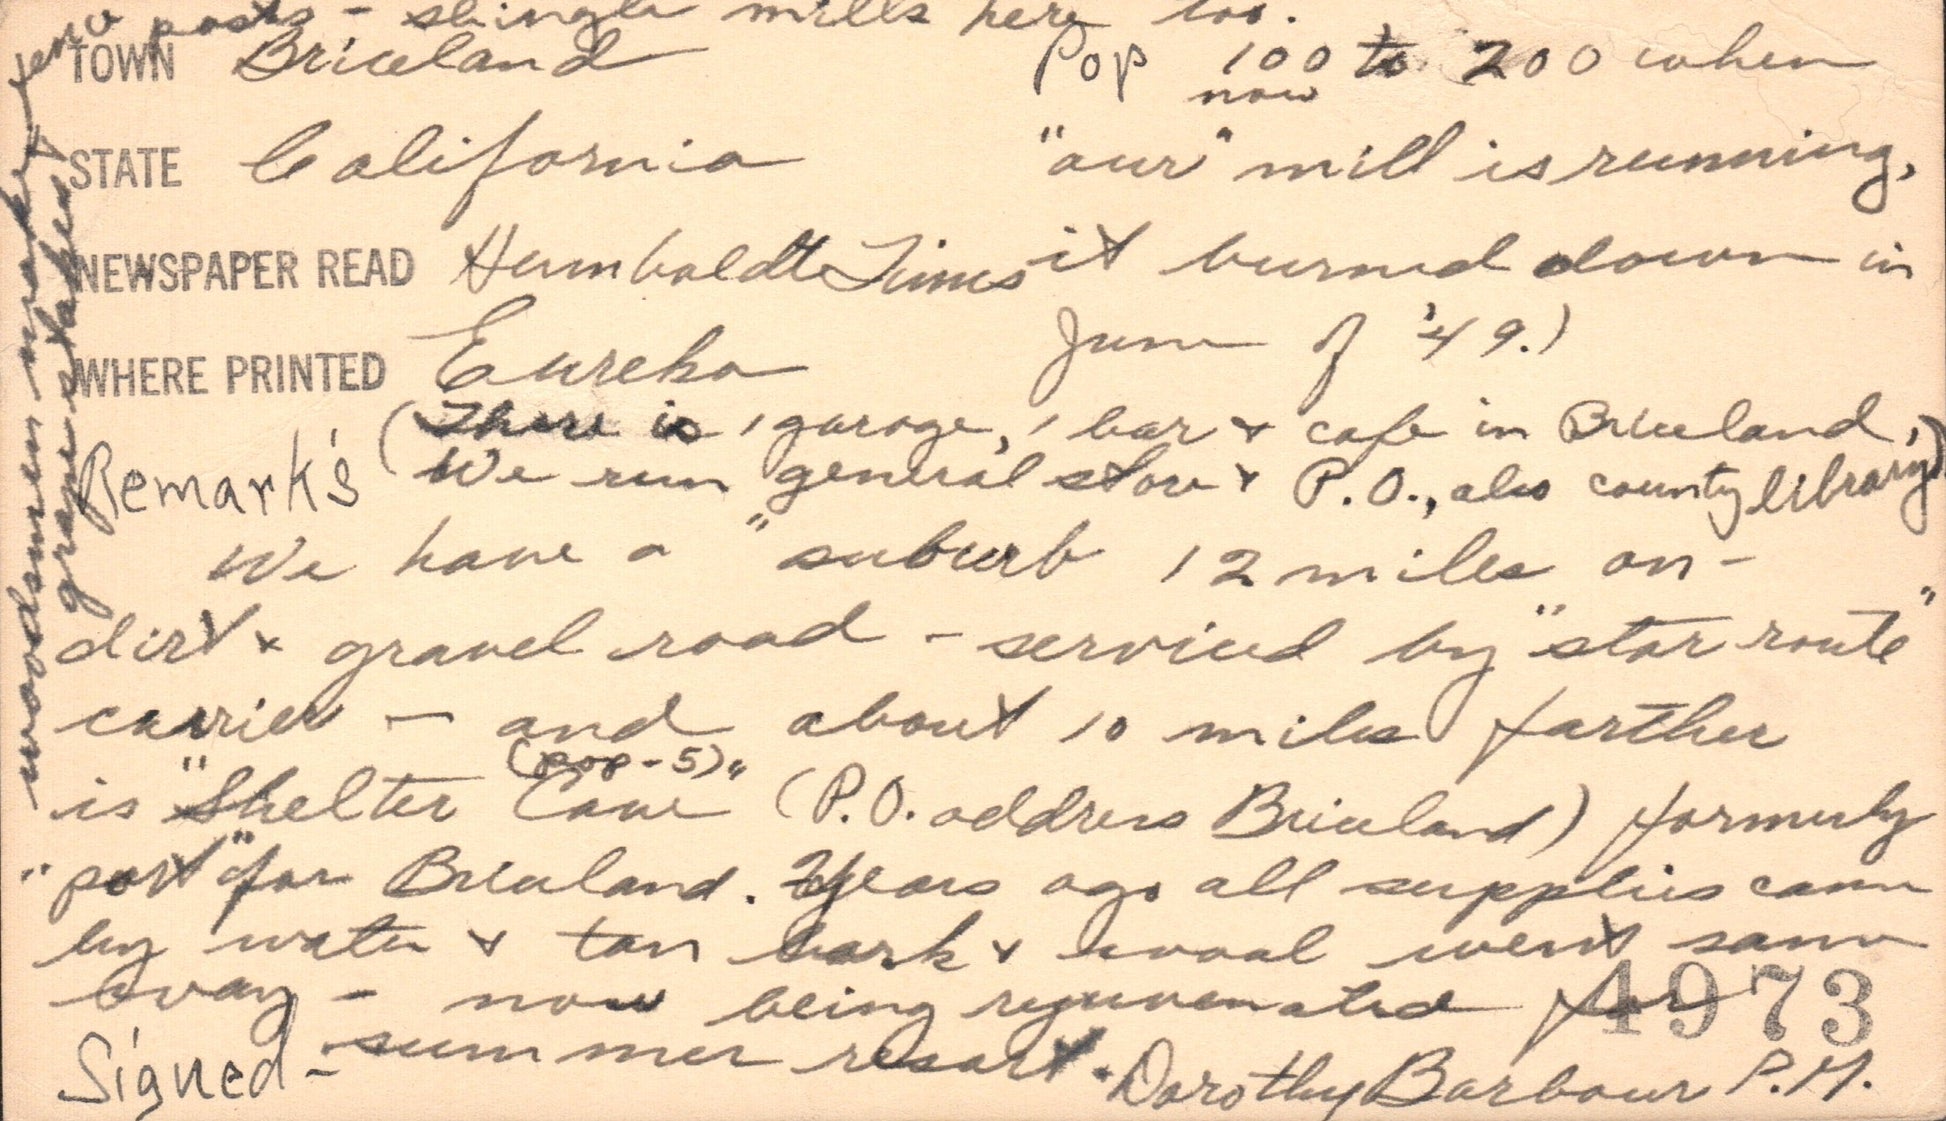 woodsmen make fence posts - shingle mills here too.
grape stakes
TOWN Briceland
Pop 100 to 200 when
now
STATE California
"our" mill is running,
NEWSPAPER READ Humboldt Times
it burned down in
WHERE PRINTED Eureka
June of '49.)
(There is 1 garage, 1 bar & cafe in Briceland,
Remark's We run general store & P.O., also county library)
We have a "suburb 12 miles on-
dirt & gravel road - serviced by "star route"
carrier - and about 10 miles farther
(pop - 5)
is "Shelter Cove" (P.O. address Briceland) formerly
"port" for Briceland. Years ago all supplies came
by water & tan bark & wool went same
way - now being rejuvenated for
4973
Signed - summer resort. Dorothy Barbour P.M.